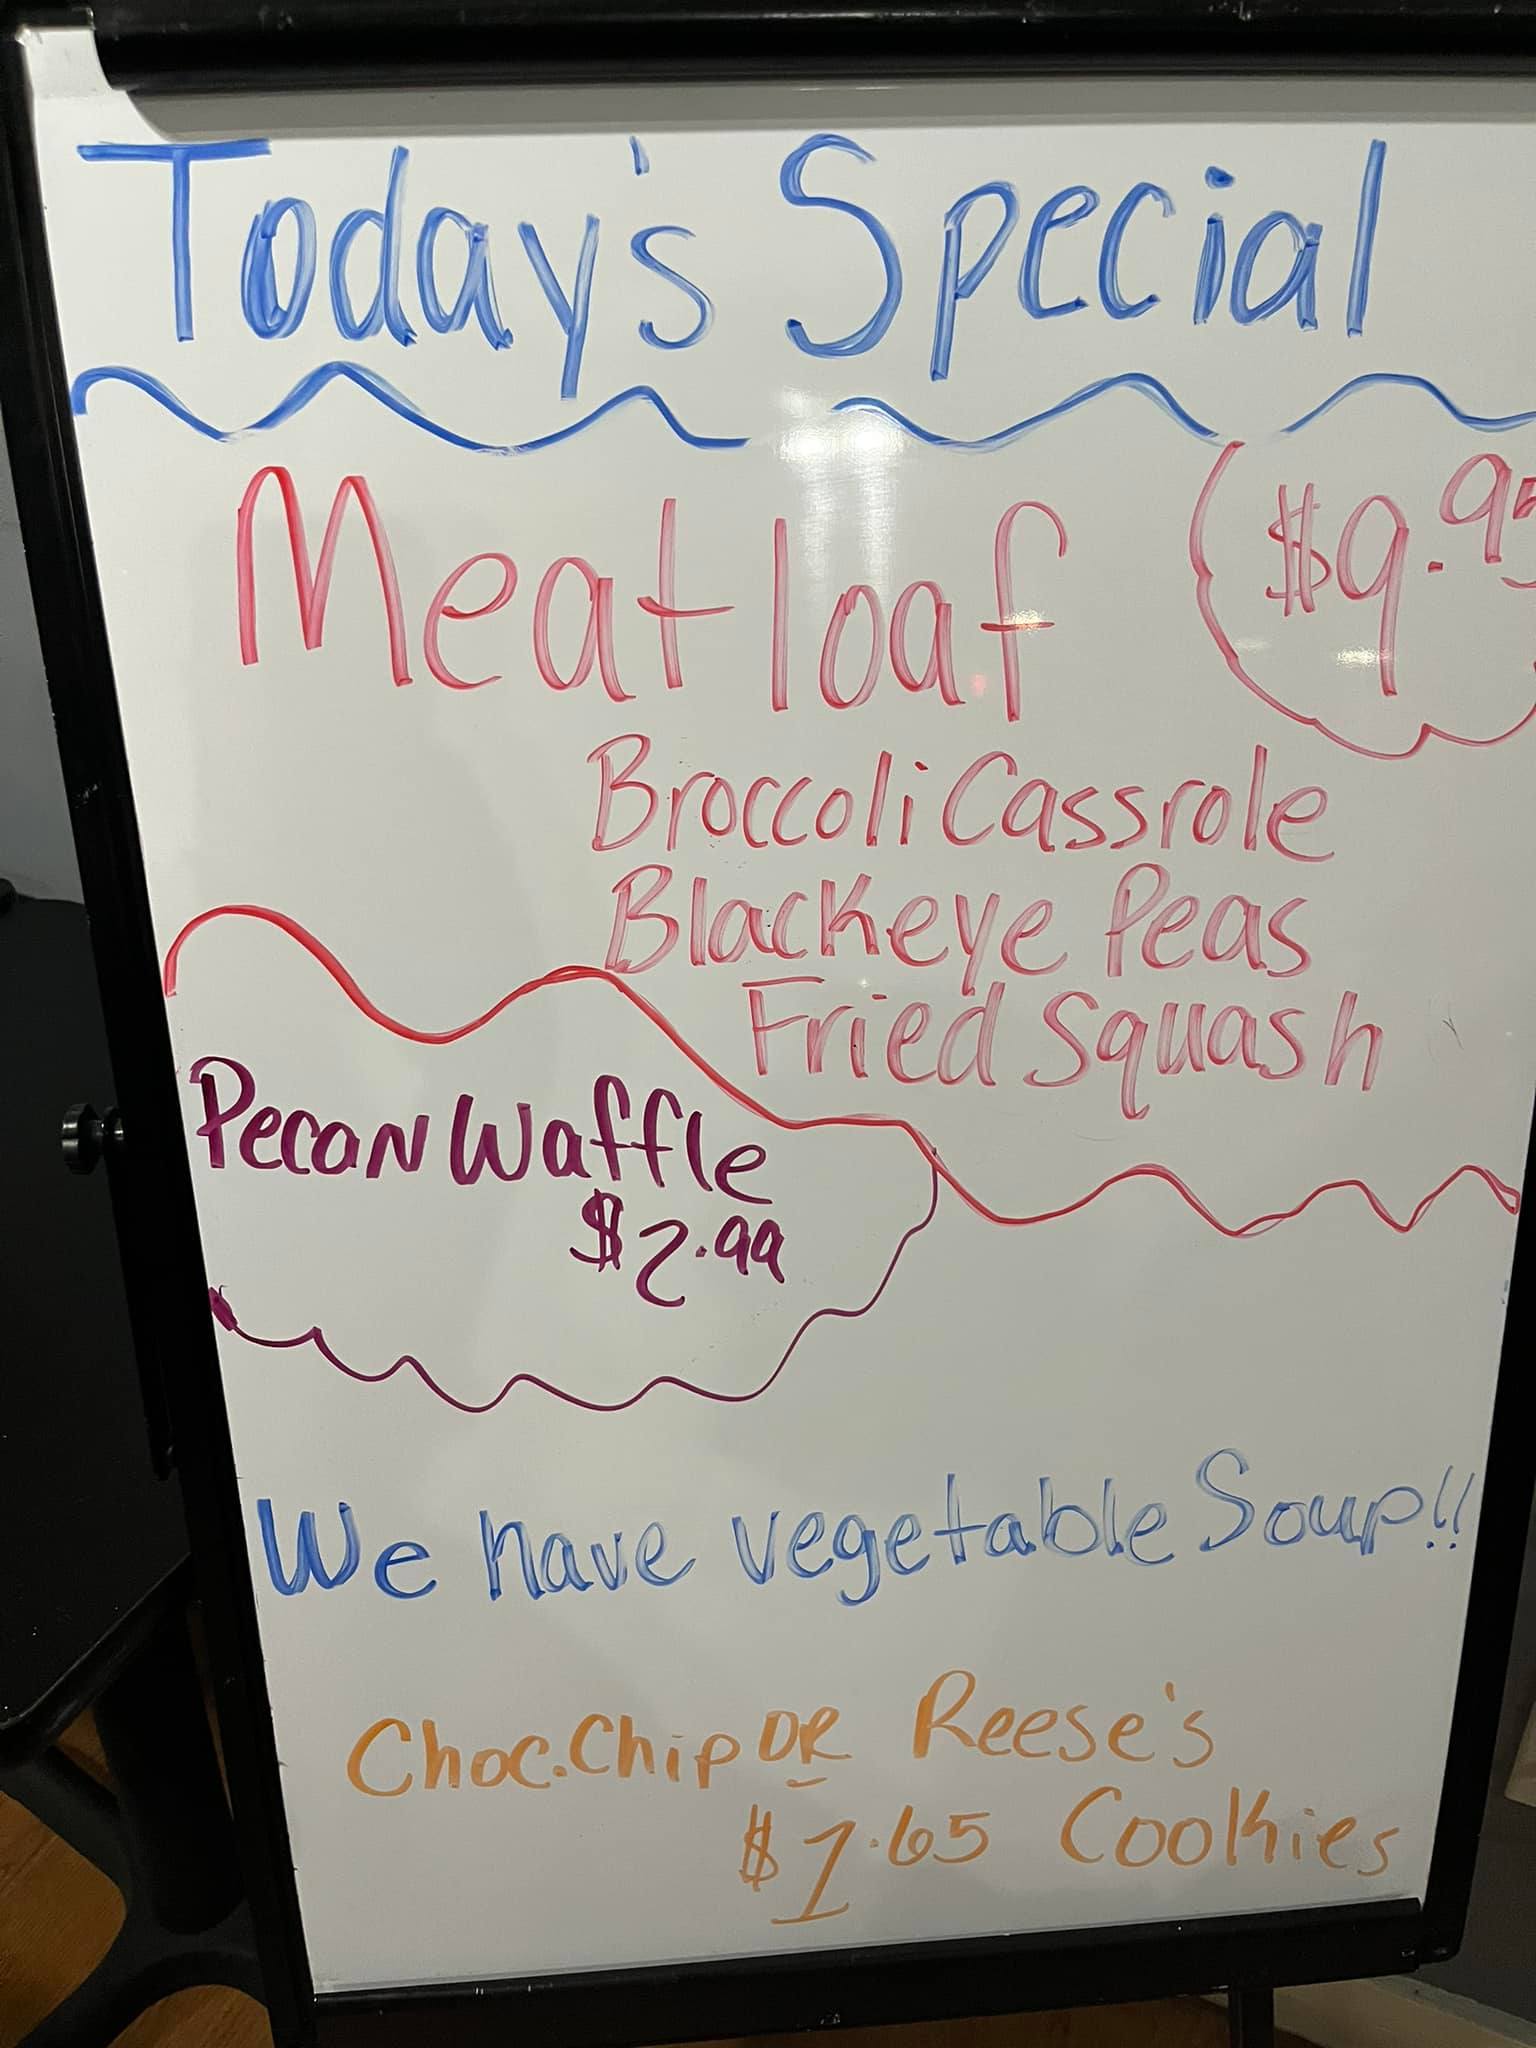 Today's Special
Meatloaf $9.95
Broccoli Cassrole
Blackeye Peas
Fried Squash
Pecan Waffle
$2.99
We have vegetable Soup!!
Choc. Chip OR Reese's
$1.65 Cookies